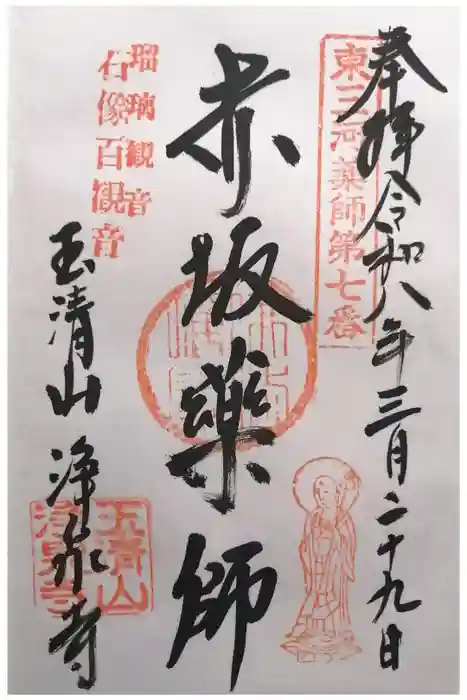 奉拝 令和八年三月二十九日
東三河薬師第七番
赤坂薬師
瑠璃観音
石像百観音
玉清山 浄泉寺
玉青山